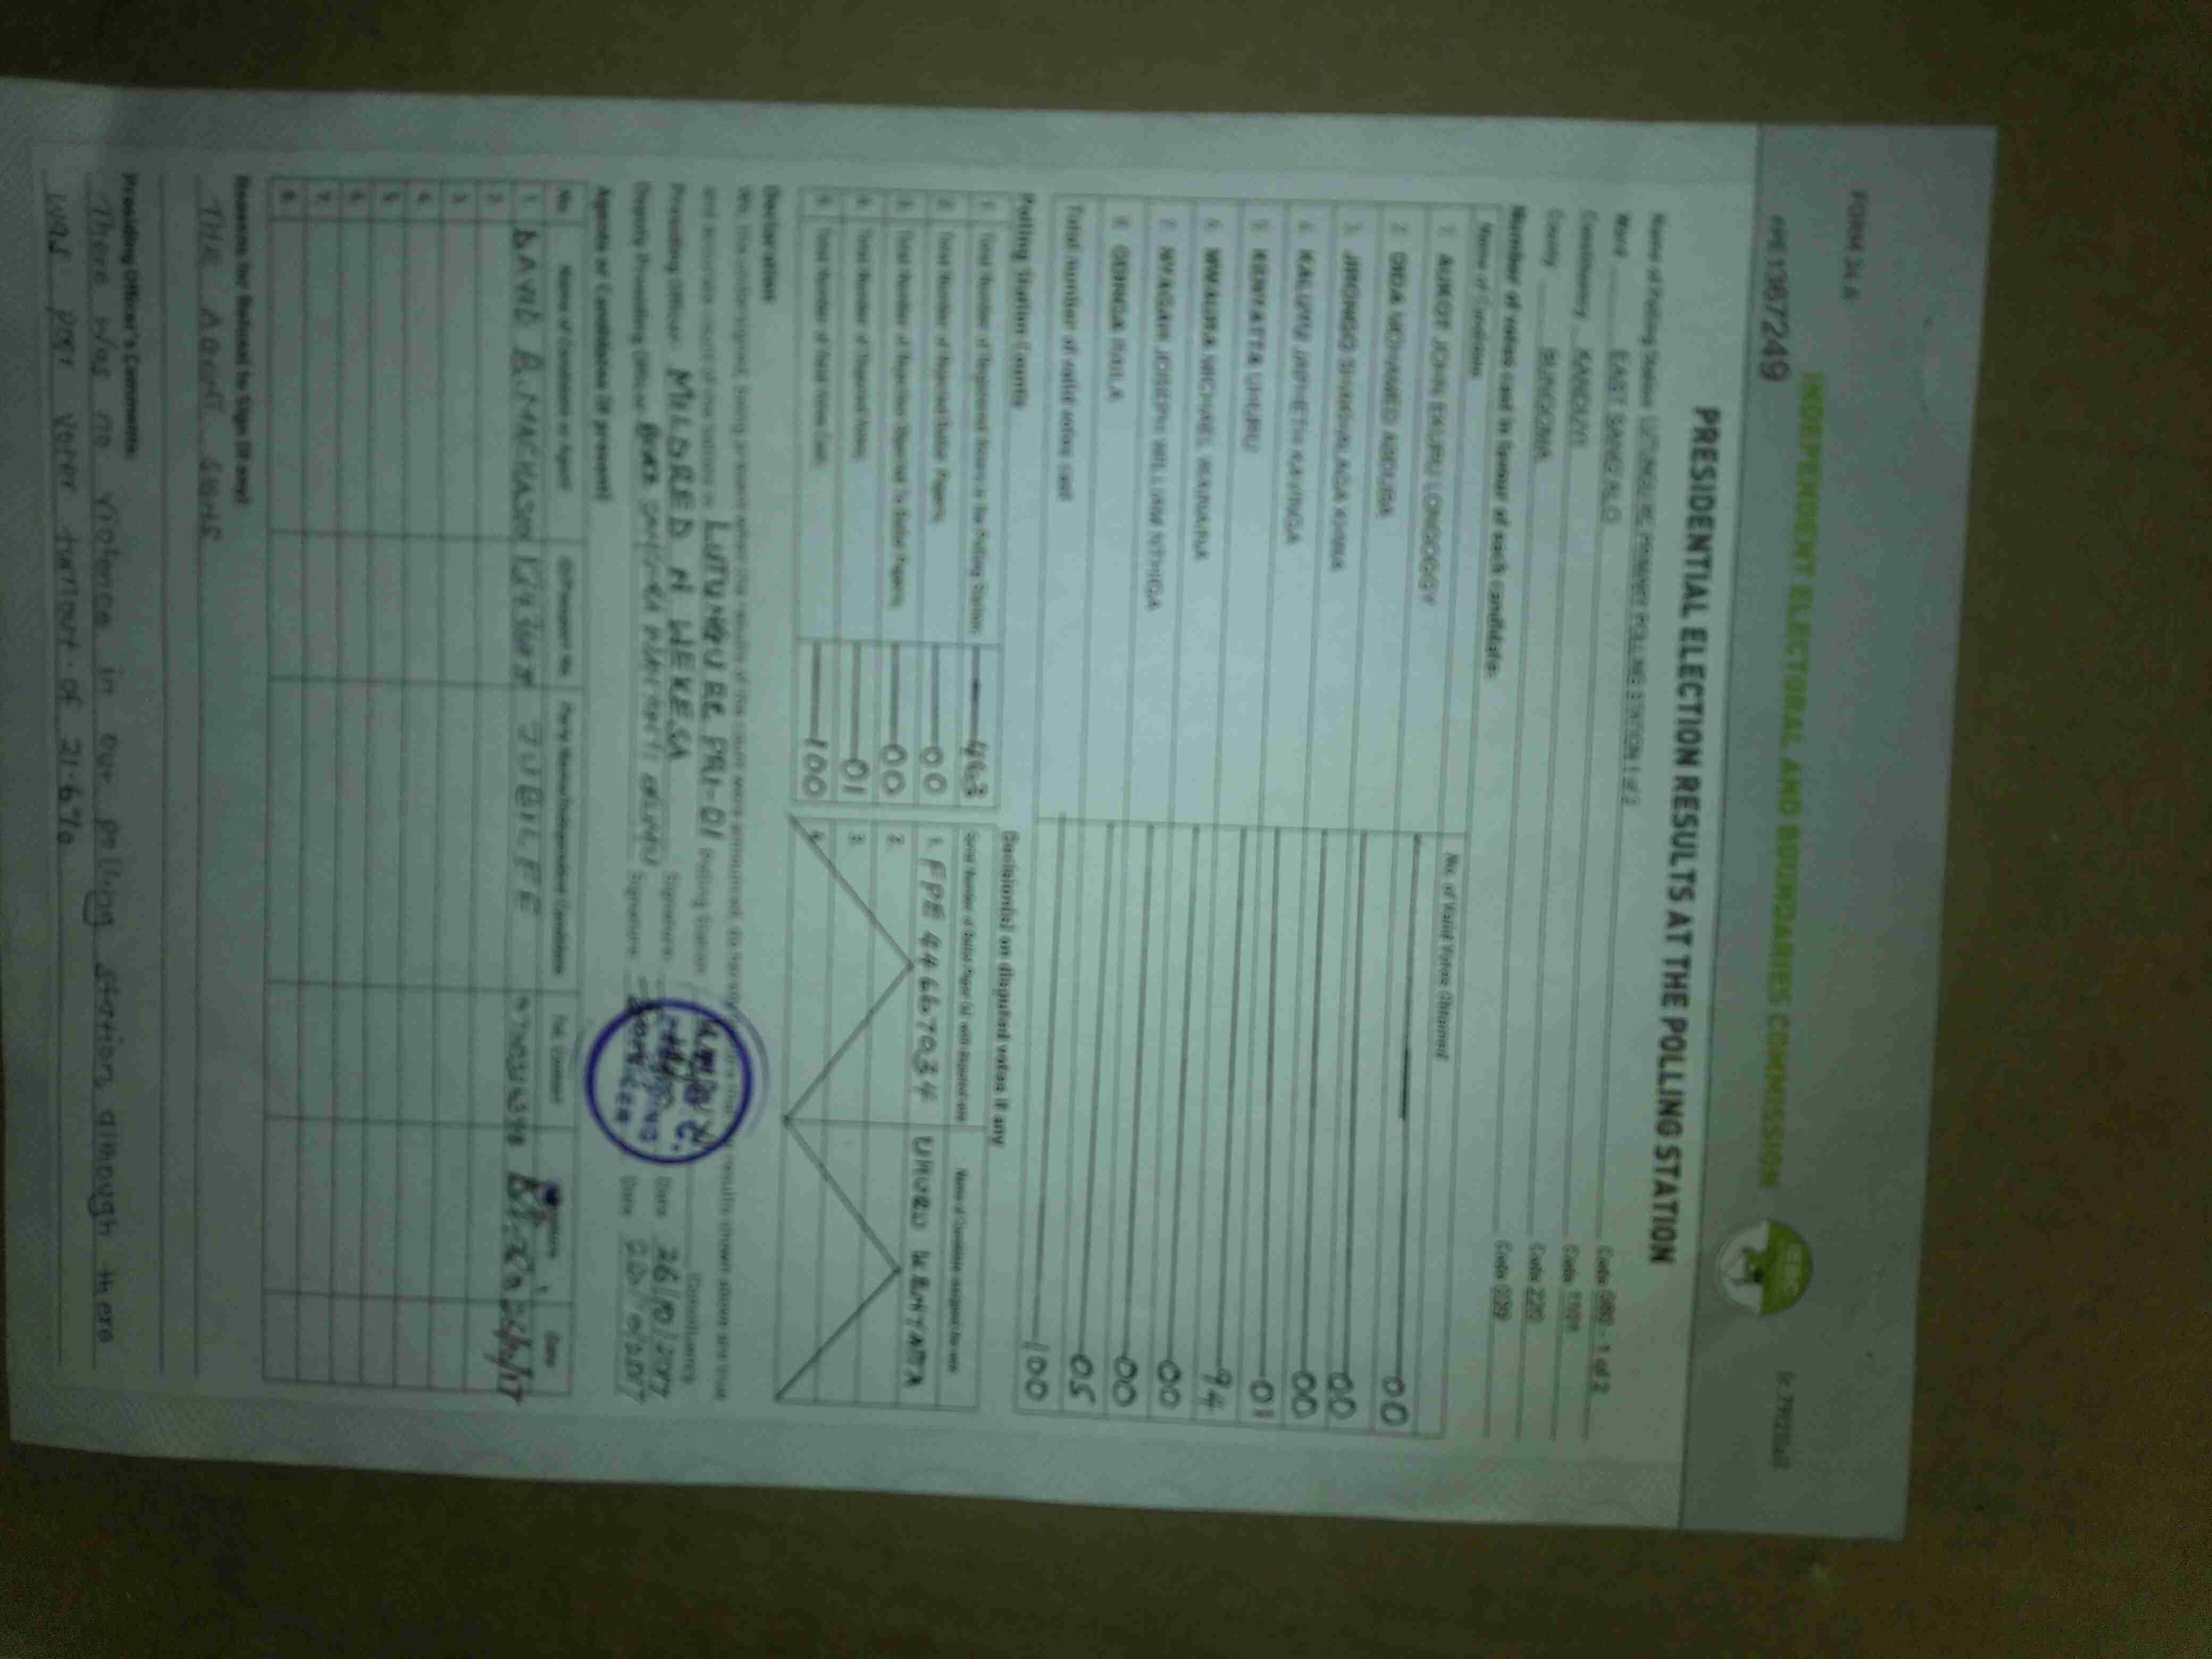 FORM 34 A
INDEPENDENT ELECTORAL AND BOUNDARIES COMMISSION
FPE 1387249
PRESIDENTIAL ELECTION RESULTS AT THE POLLING STATION
Name of Polling Station PRIMARY POLLING STATION 1 of 2 Code 1 of 2
Ward EAST SANG'ALO Code
Constituency KANDUYI Code 220
County BUNGOMA Code 039
Number of votes cast in favour of each candidate:
Name of Candidate No. of Valid Votes Obtained
1. AUKOT JOHN EKURU LONGOGGY 00
2. DIDA MOHAMED ABDUBA 00
3. JIRONGO SHAKHALAGA KHWA 00
4. KALUYU JAPHETH KAVINGA 01
5. KENYATTA UHURU 94
6. MWAURA MICHAEL WAINAINA 00
7. NYAGAH JOSEPH WILLIAM NTHIGA 00
8. ODINGA RAILA 05
Total number of valid votes cast 100
Polling Station Counts
1. Total Number of Registered Voters in the Polling Station 463
2. Total Number of Rejected Ballot Papers 00
3. Total Number of Rejection Objected To Ballot Papers 00
4. Total Number of Disputed Votes 01
5. Total Number of Valid Votes Cast 100
Decision(s) on disputed votes if any
Serial Number of Ballot Paper (s) with disputed vote Name of Candidate assigned the vote
1. FPE 44667034 UHURU KENYATTA
2.
3.
4.
Declaration
We, the undersigned, being present when the results of the count were announced, do hereby results shown above are true
and accurate count of the ballots in LUTUNGU RC PRI-01 Polling Station Constituency
Presiding Officer MILDRED N WEKESA Signature: Date 26/10/2017
Deputy Presiding Officer Signature: Date
Agents or Candidates (if present)
No. Name of Candidate or Agent ID/Passport No. Party Name/Independent Candidate Tel. Contact Signature Date
1 DAVID B. JUBILEE
2
3
4
5
6
7
8
Reasons for Refusal to Sign (if any)
THE AGENT
Presiding Officer's Comments:
There was no violence in our polling station although there
was poor voter turnout of 21.6%